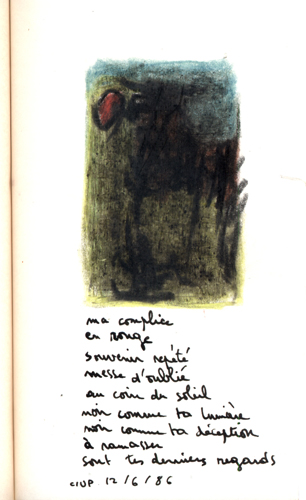 ma complice
en rouge
souvenir répété
messe d'oublié
au coin du soleil
noir comme ta lumière
noir comme ta déception
à ramasser
sont tes derniers regards
CIUP 12/6/86